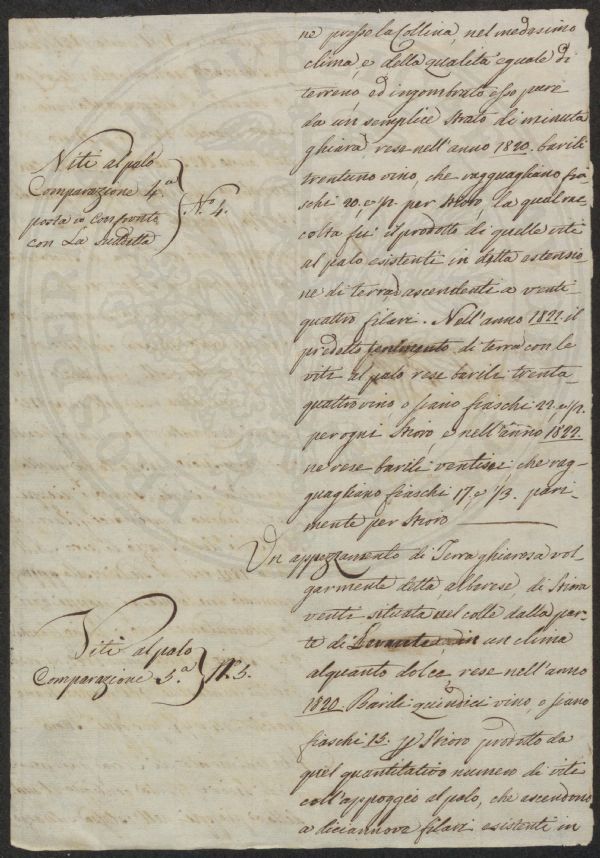 ne presso la Collina, nel medesimo
clima, e della qualità eguale di
terreno, ed ingombrato esso pure
da un semplice strato di minuta
ghiara rese nell'anno 1820. barili
trentuno vino, che ragguagliano fia=
schi 20. e 1/2 per Stioro, la qual rac
colta fu' il prodotto di quelle viti
al palo esistenti in detta estensio
ne di terra ascendenti a venti
quattro filari. Nell'anno 1821. il
predetto tenimento di terra con le
viti al palo rese barili trenta=
quattro vino o siano fiaschi 22. e 1/2.
per ogni Stioro, e nell'anno 1822.
ne rese barili ventisei, che rag=
guagliano fiaschi 17. e 1/3. pari=
mente per Stioro
Viti al palo
Comparazione 4.a
posta in confronto
con La Suddetta
N.o 4.
Un appezzamento di Terra ghiarosa vol
garmente detta alberese, di Stiora
venti situata nel colle dalla par=
te di Levante, in un clima
alquanto dolce rese nell'anno
1820. Barili quindici vino, o siano
fiaschi 15. p Stioro prodotto da
quel quantitativo numero di viti
coll'appoggio al palo, che ascendono
a diciannove filari esistenti in
Viti al palo
Comparazione 5.a
N. 5.